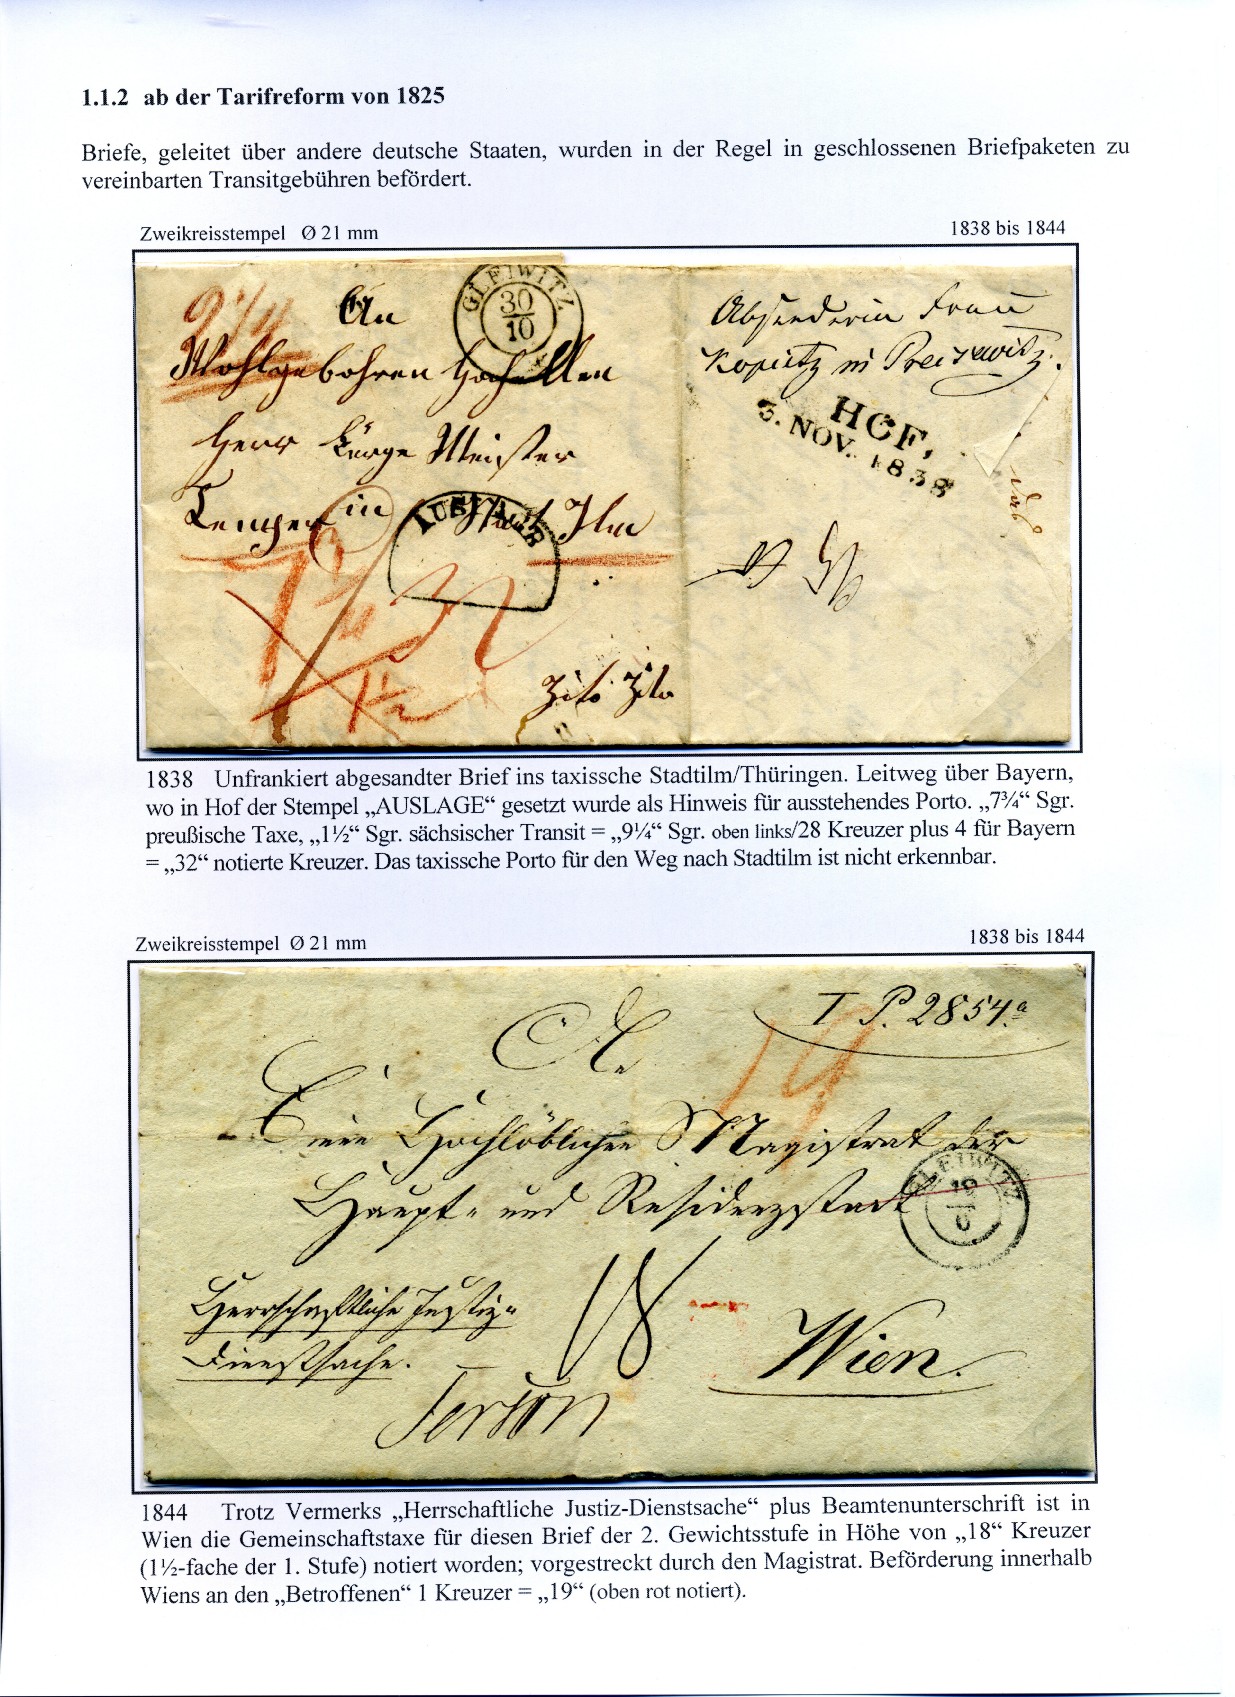 1.1.2 ab der Tarifreform von 1825
Briefe, geleitet über andere deutsche Staaten, wurden in der Regel in geschlossenen Briefpaketen zu
vereinbarten Transitgebühren befördert.
Zweikreisstempel Ø 21 mm
1838 bis 1844
9¼
An
GLEIWITZ
30
10
Wohlgebohren
Herr Bürge Meister
in Stadt Ilm
AUSLAGE
7¾
32
1½
Zito Zito
Absenderin Frau
in Preiswitz.
HOF,
3. NOV. 1838
1838 Unfrankiert abgesandter Brief ins taxissche Stadtilm/Thüringen. Leitweg über Bayern,
wo in Hof der Stempel „AUSLAGE“ gesetzt wurde als Hinweis für ausstehendes Porto. „7¾“ Sgr.
preußische Taxe, „1½“ Sgr. sächsischer Transit = „9¼“ Sgr. oben links/28 Kreuzer plus 4 für Bayern
= „32“ notierte Kreuzer. Das taxissche Porto für den Weg nach Stadtilm ist nicht erkennbar.
Zweikreisstempel Ø 21 mm
1838 bis 1844
I P. 2854.a
19
An
Einen Hochlöblichen Magistrat der
Haupt- und Residenzstadt
GLEIWITZ
19
6
Herrschaftliche Justiz-
Dienstsache.
18
Wien.
1844 Trotz Vermerks „Herrschaftliche Justiz-Dienstsache“ plus Beamtenunterschrift ist in
Wien die Gemeinschaftstaxe für diesen Brief der 2. Gewichtsstufe in Höhe von „18“ Kreuzer
(1½-fache der 1. Stufe) notiert worden; vorgestreckt durch den Magistrat. Beförderung innerhalb
Wiens an den „Betroffenen“ 1 Kreuzer = „19“ (oben rot notiert).